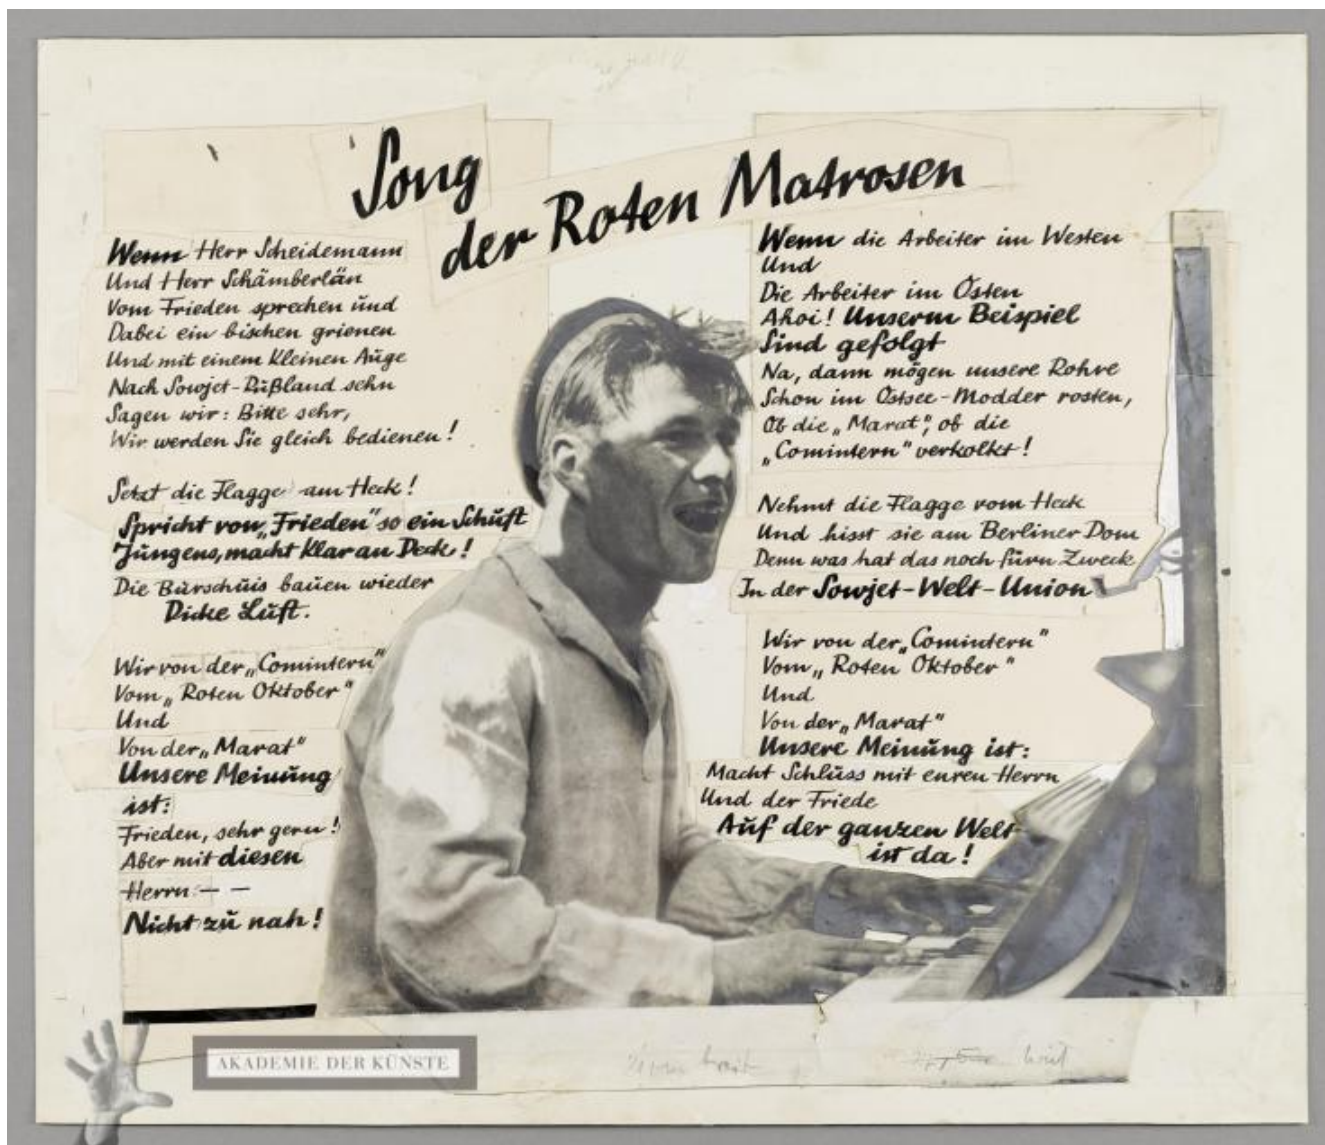 Song
der Roten Matrosen
Wenn Herr Scheidemann
Und Herr Schämberlän
Vom Frieden sprechen und
Dabei ein bischen grienen
Und mit einem kleinen Auge
Nach Sowjet-Rußland sehn
Sagen wir: Bitte sehr,
Wir werden Sie gleich bedienen!
Setzt die Flagge am Heck!
Spricht von „Frieden" so ein Schuft
Jungens, macht klar an Deck!
Die Burschuis bauen wieder
Dicke Luft.
Wir von der „Comintern"
Vom „Roten Oktober"
Und
Von der „Marat"
Unsere Meinung
ist:
Frieden, sehr gern!
Aber mit diesen
Herrn: — —
Nicht zu nah!
Wenn die Arbeiter im Westen
Und
Die Arbeiter im Osten
Ahoi! Unserm Beispiel
Sind gefolgt
Na, dann mögen unsere Rohre
Schon im Ostsee-Modder rosten,
Ob die „Marat", ob die
„Comintern" verkolkt!
Nehmt die Flagge vom Heck
Und hisst sie am Berliner Dom
Denn was hat das noch fürn Zweck
In der Sowjet-Welt-Union
Wir von der „Comintern"
Vom „Roten Oktober"
Und
Von der „Marat"
Unsere Meinung ist:
Macht Schluss mit euren Herrn
Und der Friede
Auf der ganzen Welt
ist da!
AKADEMIE DER KÜNSTE